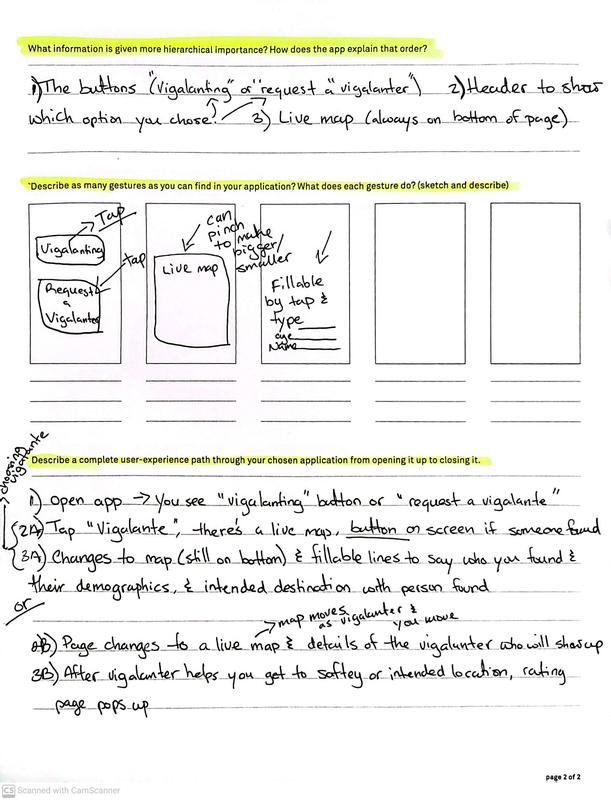 What information is given more hierarchical importance? How does the app explain that order?
1) The buttons ("Vigalanting" or "request a "vigalanter") 2) Header to show
which option you chose. 3) Live map (always on bottom of page)
*Describe as many gestures as you can find in your application? What does each gesture do? (sketch and describe)
Tap
Vigalanting
tap
Request
a
Vigalanter
can
pinch
to make
bigger/
smaller
Live map
Fillable
by tap &
type
age
Name
choosing
vigalante
Describe a complete user-experience path through your chosen application from opening it up to closing it.
1) Open app → You see "vigalanting" button or "request a vigalante"
2A) Tap "Vigalante", there's a live map, button on screen if someone found
3A) Changes to map (still on bottom) & fillable lines to say who you found &
their demographics, & intended destination with person found
or
map moves
as vigalanter &
you move
2B) Page changes to a live map & details of the vigalanter who will show up
3B) After vigalanter helps you get to softey or intended location, rating
page pops up
page 2 of 2
CS Scanned with CamScanner